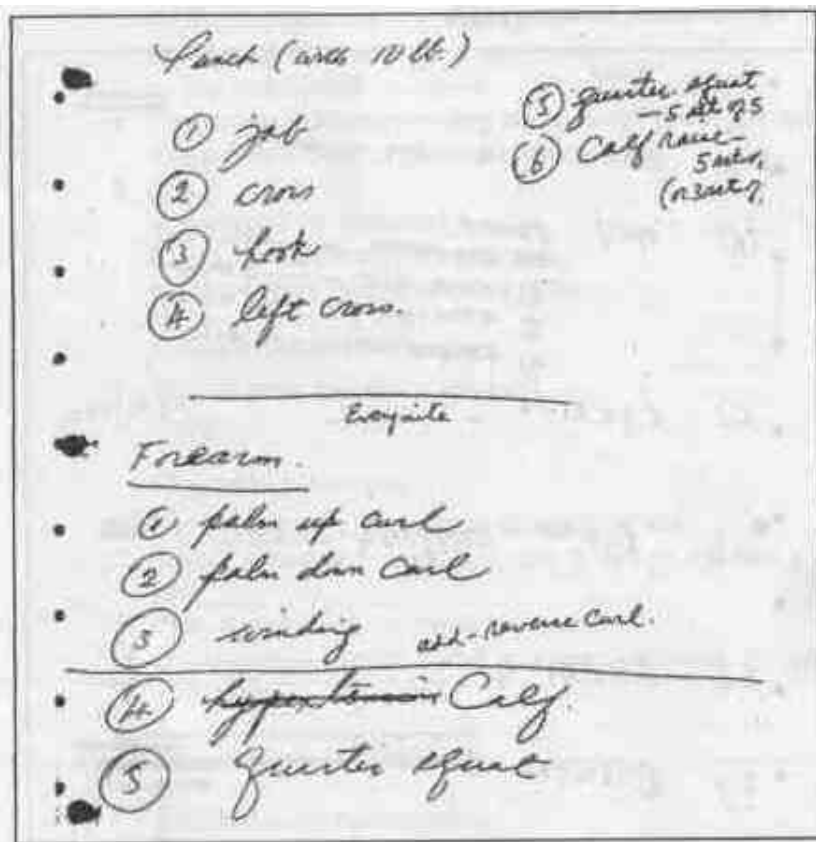 Punch (with 10 lb.)
① jab
② cross
③ hook
④ left cross.
⑤ quarter squat
— 5 set of 5
⑥ Calf raise —
5 sets,
(or 3 set of,
Forearm.
① palm up curl
② palm down curl
③ winding add - reverse curl.
④ hyperextension Calf.
⑤ quarter squat